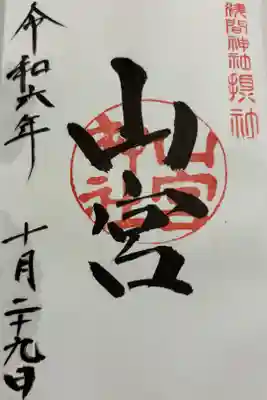 浅間神社摂社
山宮
山宮神社
令和六年
十月二十九日